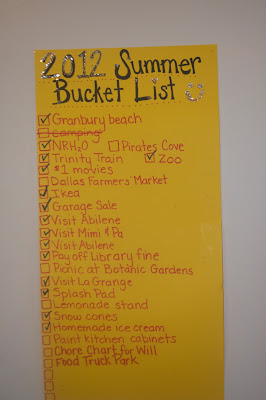 2012 Summer
Bucket List
Granbury beach
camping
NRH2O Pirates Cove
Trinity Train Zoo
$1 movies
Dallas Farmers' Market
Ikea
Garage Sale
Visit Abilene
Visit Mimi & Pa
Visit Abilene
Pay off Library fine
Picnic at Botanic Gardens
Visit La Grange
Splash Pad
Lemonade stand
Snow cones
Homemade ice cream
Paint kitchen cabinets
Chore Chart for Will
Food Truck Park